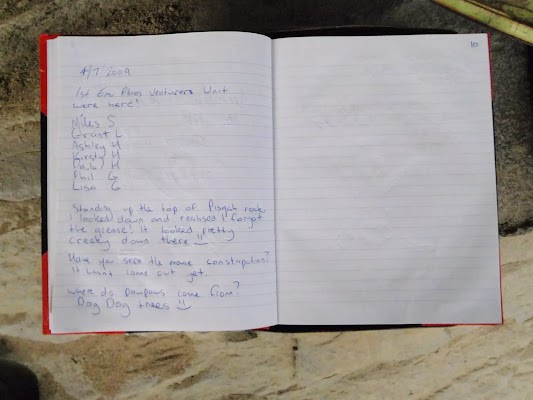 4/7/2009
1st Emu Plains Venturers Unit
were here!
Miles S
Grant L
Ashley H
Kirsty H
Paula H
Phil G
Lisa G
Standing up the top of Pisgah rock
I looked down and realised I forgot
the grease! It looked pretty
creeky down there
Have you seen the movie constapation?
it hasnt come out yet.
where do pawpaws come from?
Dog Dog trees
10